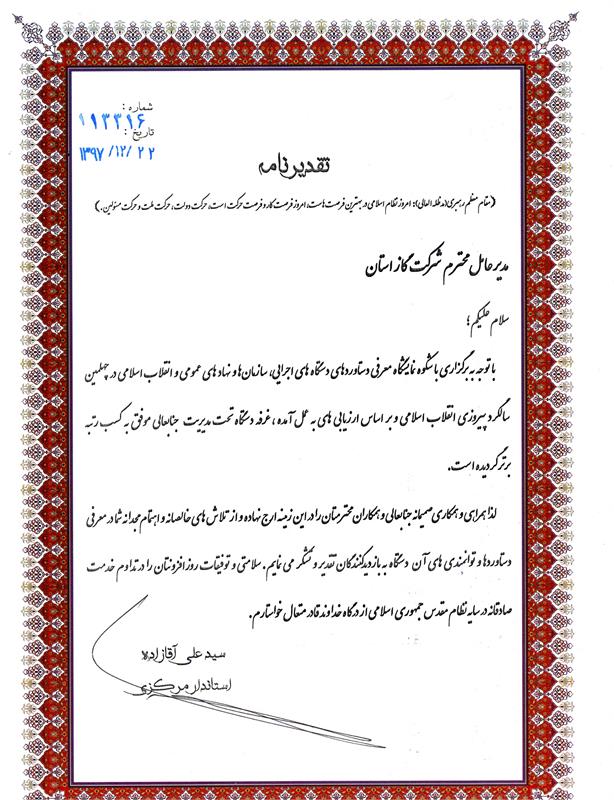 شماره :
۱۱۳۳۱۶
تاریخ :
۱۳۹۷/۱۲/۲۲
تقدیرنامه
(مقام معظم رهبری(مدظله العالی): امروز نظام اسلامی در بهترین فرصت هاست، امروز فرصت کار و فرصت حرکت است، حرکت دولت، حرکت ملت و حرکت مسئولین.)
مدیر عامل محترم شرکت گاز استان
سلام علیکم ؛
با توجه به برگزاری باشکوه نمایشگاه معرفی دستاوردهای دستگاه های اجرایی، سازمان ها و نهاد های عمومی و انقلاب اسلامی در چهلمین
سالگرد پیروزی انقلاب اسلامی و بر اساس ارزیابی های به عمل آمده ، غرفه دستگاه تحت مدیریت جنابعالی موفق به کسب رتبه
برتر گردیده است.
لذا همراهی و همکاری صمیمانه جنابعالی و همکاران محترمتان را در این زمینه ارج نهاده و از تلاش های خالصانه و اهتمام مجدانه شما در معرفی
دستاوردها و توانمندی های آن دستگاه به بازدیدکنندگان تقدیر و تشکر می نمایم. سلامتی و توفیقات روز افزونتان را در تداوم خدمت
صادقانه در سایه نظام مقدس جمهوری اسلامی از درگاه خداوند قادر متعال خواستارم.
سید علی آقازاده
استاندار مرکزی